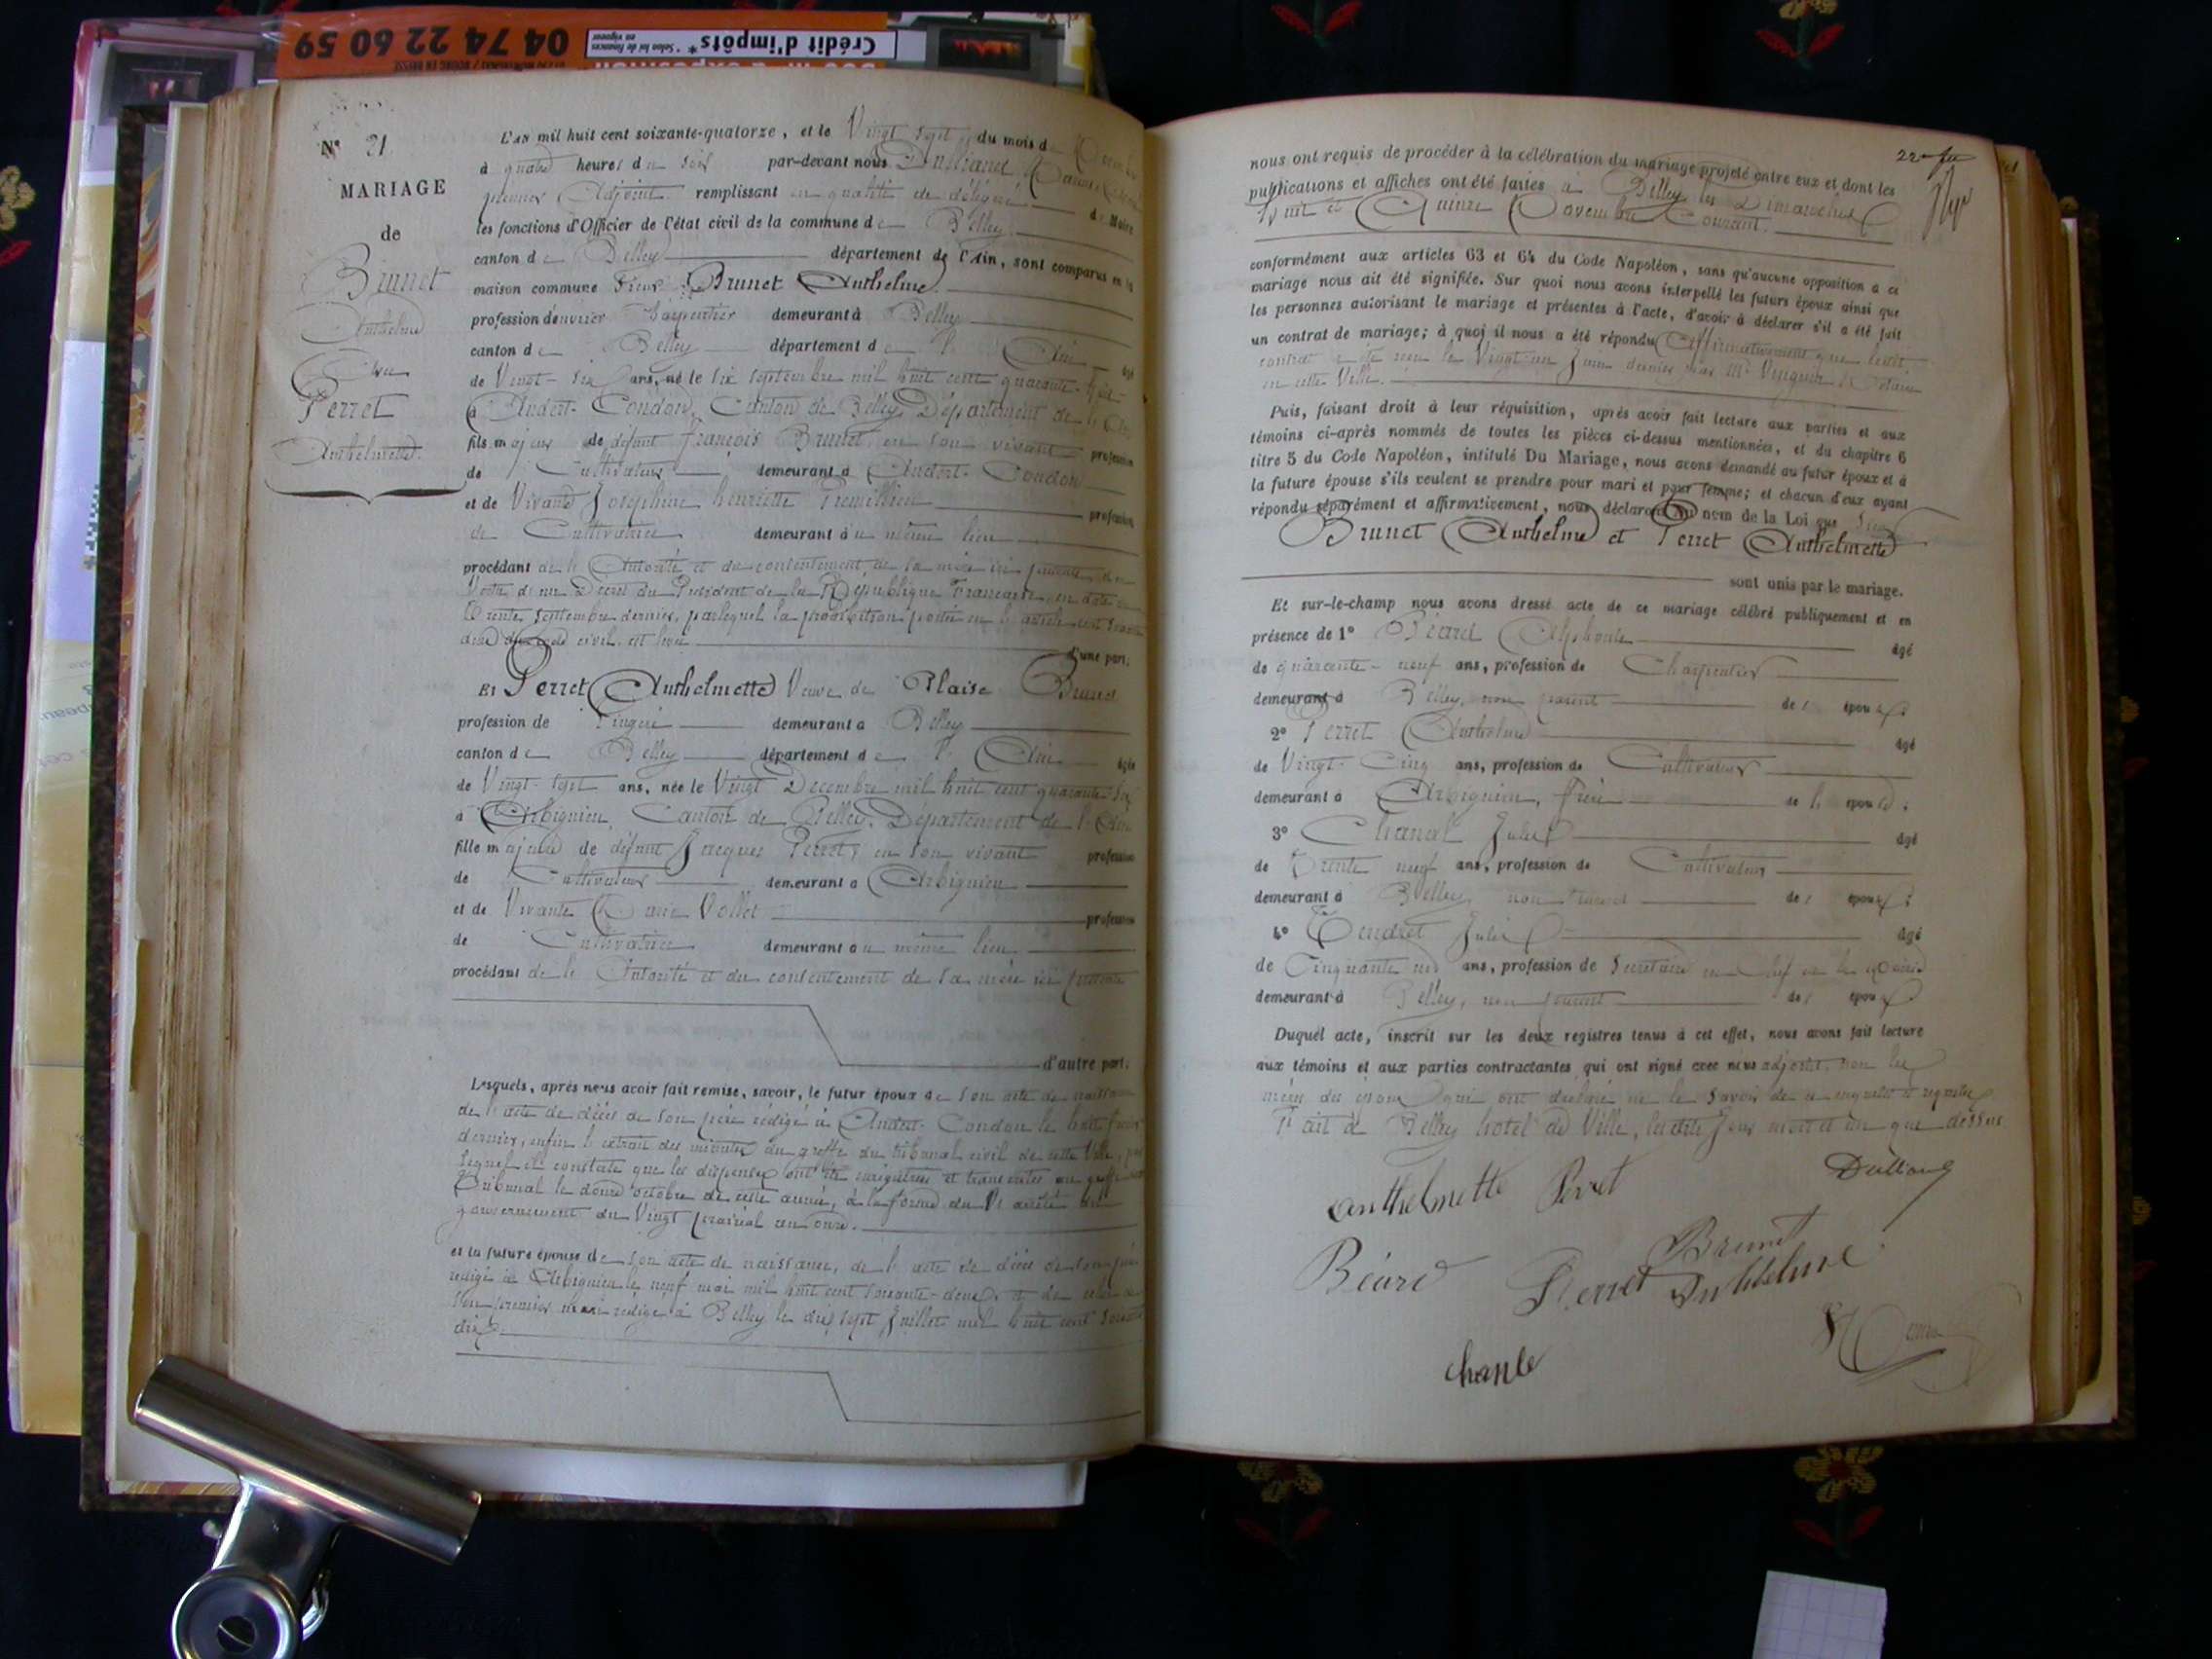 04 74 22 60 59
Crédit d'impôts*
* Selon loi de finances
en vigueur
N° 21
MARIAGE
de
Brunet
Anthelme
Et
Perret
Anthelmette
L'an mil huit cent soixante-quatorze, et le Vingt sept du mois de
à quatre heures du soir par-devant nous
premier Adjoint remplissant en qualité de délégué du Maire
les fonctions d'Officier de l'état civil de la commune de Belley
canton de Belley département de l'Ain, sont comparus en la
maison commune Sieur Brunet Anthelme
profession d'ouvrier demeurant à Belley
canton de Belley département de l'Ain âgé
de Vingt-six ans, né le six septembre mil huit cent quarante-huit
à Andert-Condon, Canton de Belley, Département de l'Ain
fils majeur de défunt françois Brunet, en son vivant profession
de Cultivateur demeurant à Andert-Condon
et de Vivante Joséphine henriette profession
de Cultivatrice demeurant au même lieu
procédant de l'Autorité et du consentement de sa mère ici présente, en
Vertu d'un Décret du Président de la République Française, en date du
Trente septembre dernier, par lequel la prohibition portée en l'article cent soixante
deux du code civil, est levée
d'une part;
Et Perret Anthelmette Veuve de Blaise Brunet
profession de Lingère demeurant à Belley
canton de Belley département de l'Ain âgée
de Vingt-sept ans, née le Vingt Décembre mil huit cent quarante six
à Arbignieu, Canton de Belley, Département de l'Ain
fille majeure de défunt Jacques Perret, en son vivant profession
de Cultivateur demeurant à Arbignieu
et de Vivante Marie Vollet profession
de Cultivatrice demeurant au même lieu
procédant de l'Autorité et du consentement de sa mère ici présente
d'autre part;
Lesquels, après nous avoir fait remise, savoir, le futur époux de son acte de naissance
de l'acte de décès de son père rédigé à Andert-Condon le huit
dernier, enfin l'extrait des minutes du greffe du tribunal civil de cette Ville, par
lequel il constate que les dispenses ont été enregistrées et transcrites au greffe
Tribunal le douze octobre de cette année, à la forme de l'arrêté du
gouvernement du Vingt prairial an onze.
et la future épouse de son acte de naissance, de l'acte de décès de son père
rédigé à Arbignieu le neuf mai mil huit cent soixante-deux et de celui de
son premier mari rédigé à Belley le dix sept Juillet mil huit cent soixante
dix
22e feu
nous ont requis de procéder à la célébration du mariage projeté entre eux et dont les
publications et affiches ont été faites à Belley les Dimanches
huit et Quinze Novembre Courant.
conformément aux articles 63 et 64 du Code Napoléon, sans qu'aucune opposition à ce
mariage nous ait été signifiée. Sur quoi nous avons interpellé les futurs époux ainsi que
les personnes autorisant le mariage et présentes à l'acte, d'avoir à déclarer s'il a été fait
un contrat de mariage; à quoi il nous a été répondu Affirmativement que ledit
contrat a été reçu le Vingt un Juin dernier par Me Notaire
en cette Ville.
Puis, faisant droit à leur réquisition, après avoir fait lecture aux parties et aux
témoins ci-après nommés de toutes les pièces ci-dessus mentionnées, et du chapitre 6
titre 5 du Code Napoléon, intitulé Du Mariage, nous avons demandé au futur époux et à
la future épouse s'ils veulent se prendre pour mari et pour femme; et chacun d'eux ayant
répondu séparément et affirmativement, nous déclarons au nom de la Loi que Sieur
Brunet Anthelme et Perret Anthelmette
sont unis par le mariage.
Et sur-le-champ nous avons dressé acte de ce mariage célébré publiquement et en
présence de 1° Béard Alphonse âgé
de quarante-neuf ans, profession de Charpentier
demeurant à Belley, non parent des époux;
2° Perret Anthelme âgé
de Vingt-Cinq ans, profession de Cultivateur
demeurant à Arbignieu, frère de l'épouse;
3° Chanel Jules âgé
de Trente neuf ans, profession de Cultivateur
demeurant à Belley, non parent des époux;
4° Tendret Julien âgé
de Cinquante ans, profession de Secrétaire en Chef de la Mairie
demeurant à Belley, non parent des époux
Duquel acte, inscrit sur les deux registres tenus à cet effet, nous avons fait lecture
aux témoins et aux parties contractantes qui ont signé avec nous adjoint, non les
mères des époux qui ont déclaré ne le savoir de ce enquises et requises
Fait à Belley hotel de Ville, lesdits Jour mois et an que dessus
anthelmette Perret
Béard
Perret
Brunet
Anthelme
chanle